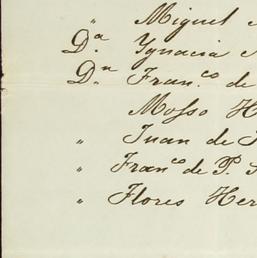 " Miguel
D.ª Ygnacia
D.n Fran.co de
Mosso H
" Juan de
" Fran.co de P. S
" Flores Her